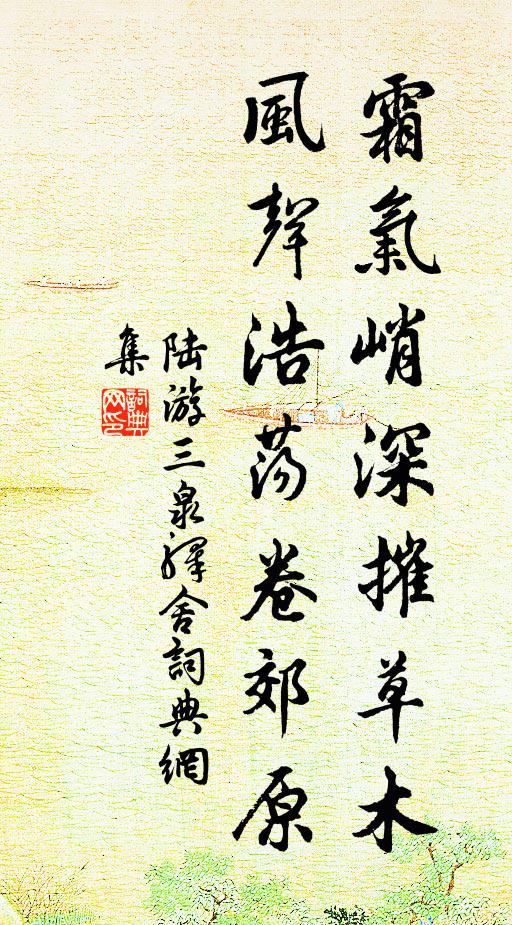 霜氣峭深摧草木
風聲浩荡卷郊原
陆游三泉驛舍詞典網
集
詞典
网印